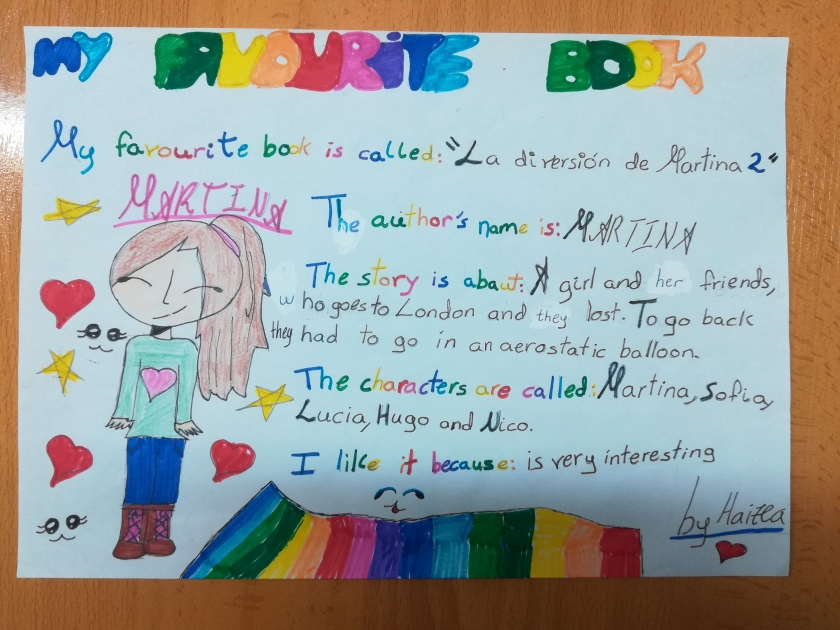 MY FAVOURITE BOOK
My favourite book is called: "La diversión de Martina 2"
MARTINA
The author's name is: MARTINA
The story is abaut: A girl and her friends,
who goes to London and they lost. To go back
they had to go in an aerostatic balloon.
The characters are called: Martina, Sofia,
Lucia, Hugo and Nico.
I like it because: is very interesting
by Haizea